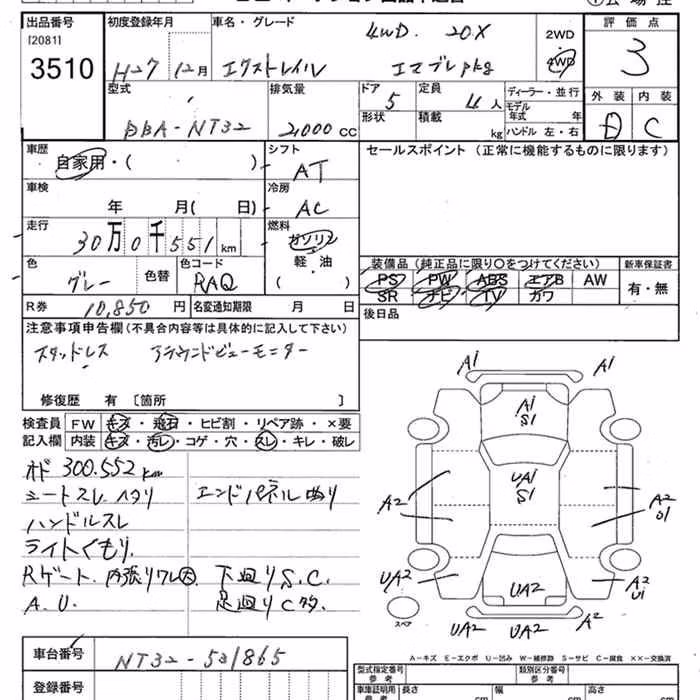 出品番号
[2081]
3510
初度登録年月
H27 12月
車名・グレード
4WD. 20X
エクストレイル エマブレpkg
2WD
4WD
評価点
3
外装 内装
D C
型式
DBA-NT32
排気量
2,000 CC
ドア
5
定員
4人
形状
積載
kg
ディーラー・並行
モデル年式 年
ハンドル 左・右
車歴
自家用・( )
シフト
AT
セールスポイント (正常に機能するものに限ります)
車検
年 月( 日)
冷房
AC
走行
30万0千551km
燃料
ガソリン
軽・油
( )
色
グレー
色替
色コード
RAQ
装備品 (純正品に限り○をつけてください)
PS PW ABS エアB AW
SR ナビ TV カワ
新車保証書
有・無
R券
10,850 円
名変通知期限 月 日
後日品
注意事項申告欄(不具合内容等は具体的に記入して下さい)
スタッドレス アラウンドビューモニター
修復歴 有 〔箇所 〕
検査員記入欄
FW キズ・飛石・ヒビ割・リペア跡・×要
内装 キズ・汚レ・コゲ・穴・スレ・キレ・破レ
オド 300.552km
シートスレ ヘタリ エンドパネル曲り
ハンドルスレ
ライトくもり.
Rゲート. 内張りワレ大. 下廻りS.C.
A.U. 足廻りC多.
A1 A1
A1
S1
UA1
S1
A2
A2
U1
UA2
UA2
A2
U1
UA2 UA2 A2
スペア
A-キズ E-エクボ U-凹み W-補修跡 S-サビ C-腐食 ××-交換済
車台番号
NT32-531865
登録番号
型式指定番号
参考
類別区分番号
参考
車庫証明用
参考
長さ
cm
幅
cm
高さ
cm